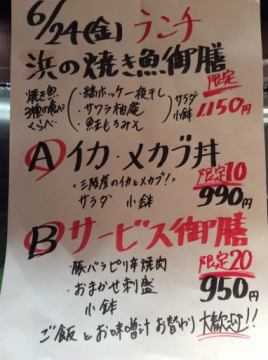 6/24(金) ランチ
浜の焼き魚御膳
限定
焼き魚3種の食べくらべ
・縞ホッケ一夜干し
・サワラ柚庵
・鮭もろみ
サラダ
小鉢
1,150円
A イカ・メカブ丼
限定10
990円
〈三陸産のイカとメカブ!〉
サラダ 小鉢
B サービス御膳
限定20
950円
・豚バラピリ辛焼肉
・おまかせ刺盛
小鉢
ご飯とお味噌汁お替わり大歓迎!!